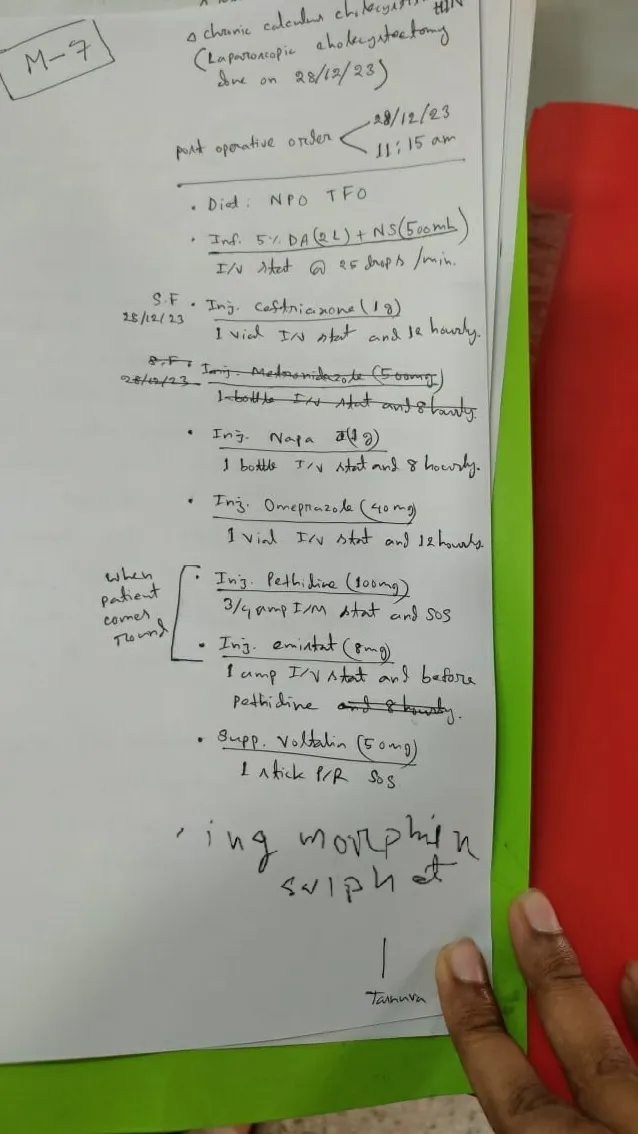 M-7
Δ chronic calculus cholecystitis HTN
(Laparoscopic cholecystectomy
done on 28/12/23)
post operative order < 28/12/23
11:15 am
• Diet: NPO TFO
• Inf. 5% DA (2L) + NS (500ml)
I/V stat @ 25 drops/min.
S.F • Inj. Ceftriaxone (1g)
28/12/23 1 vial I/V stat and 12 hourly.
S.F. • Inj. Metronidazole (500mg)
28/12/23 1 bottle I/V stat and 8 hourly.
• Inj. Napa (1g)
1 bottle I/V stat and 8 hourly.
• Inj. Omeprazole (40mg)
1 vial I/V stat and 12 hourly
when patient comes round
• Inj. Pethidine (100mg)
3/4 amp I/M stat and SOS
• Inj. emistat (8mg)
1 amp I/V stat and before
pethidine and 8 hourly.
• Supp. Voltalin (50mg)
1 stick P/R SOS
• ing morphin
sulphet